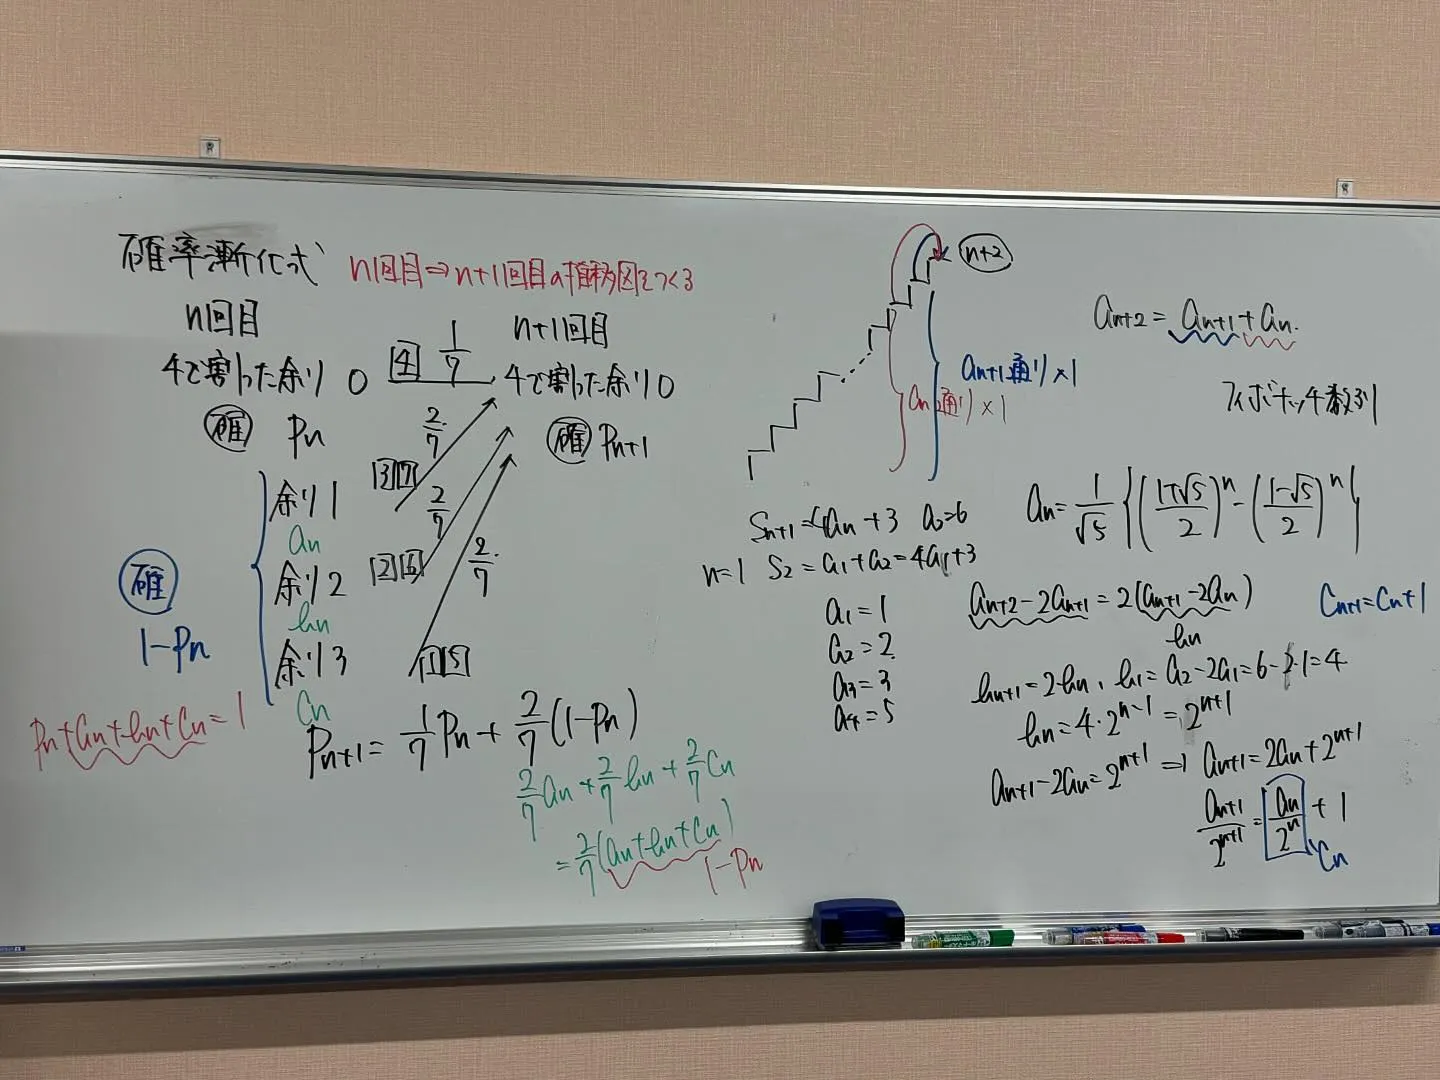 確率漸化式 n回目⇒n+1回目の推移図をつくる
n回目
4で割った余り 0
確 Pn
4 1/7
n+1回目
4で割った余り 0
確 Pn+1
2/7
3 7
余り1
an
2/7
2 6
余り2
bn
2/7
1 5
余り3
cn
確
1-Pn
Pn+an+bn+cn=1
Pn+1 = 1/7 Pn + 2/7 (1-Pn)
2/7 an + 2/7 bn + 2/7 cn
= 2/7 (an+bn+cn)
1-Pn
n+2
an+1通り×1
an通り×1
an+2 = an+1 + an.
フィボナッチ数列
an = 1/√5 { ((1+√5)/2)^n - ((1-√5)/2)^n }
Sn+1=4an+3 a2=6
n=1 S2 = a1+a2 = 4a1+3
a1=1
a2=2
a3=3
a4=5
an+2-2an+1 = 2(an+1-2an)
bn
Cn+1=Cn+1
bn+1=2bn, b1=a2-2a1=6-2·1=4
bn=4·2^(n-1)=2^(n+1)
an+1-2an=2^(n+1) ⇒ an+1=2an+2^(n+1)
an+1/2^(n+1) = an/2^n + 1
Cn